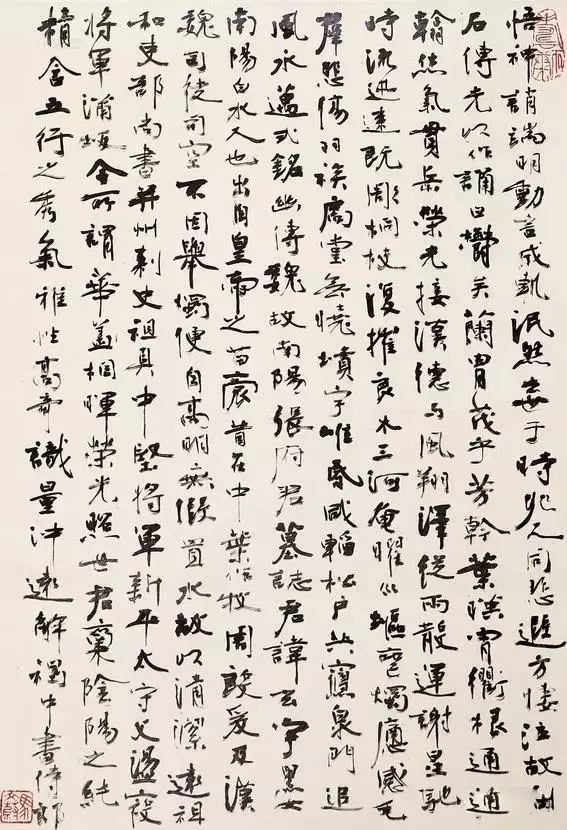 悟神峭端明動言成軌泯然去世于時兆人同悲遐方悽泣故刊
石傳光以作誦曰鬱矣蘭冑茂乎芳幹葉映霄衢根通
翰綺氣貫岳榮光接漢德与風翔澤從雨散運謝星馳
時流迅速既彫桐枝復摧良木三河奄曜巛塸喪燭痛感毛
羣悲傷羽族扃堂無曉墳宇唯昏咸韜松戶共寢泉門追
風永邁式銘幽傳魏故南陽張府君墓誌君諱玄字黑女
南陽白水人也出自皇帝之苗裔昔在中葉作牧周殷爰及漢
魏司徒司空不因舉燭便自高明無假置水故以清潔遠祖
和吏部尚書并州刺史祖具中堅將軍新平太守父盪寇
將軍蒲坂令所謂華蓋相暉榮光照世君稟陰陽之純
精含五行之秀氣雅性高奇識量沖遠解褐中書侍郎